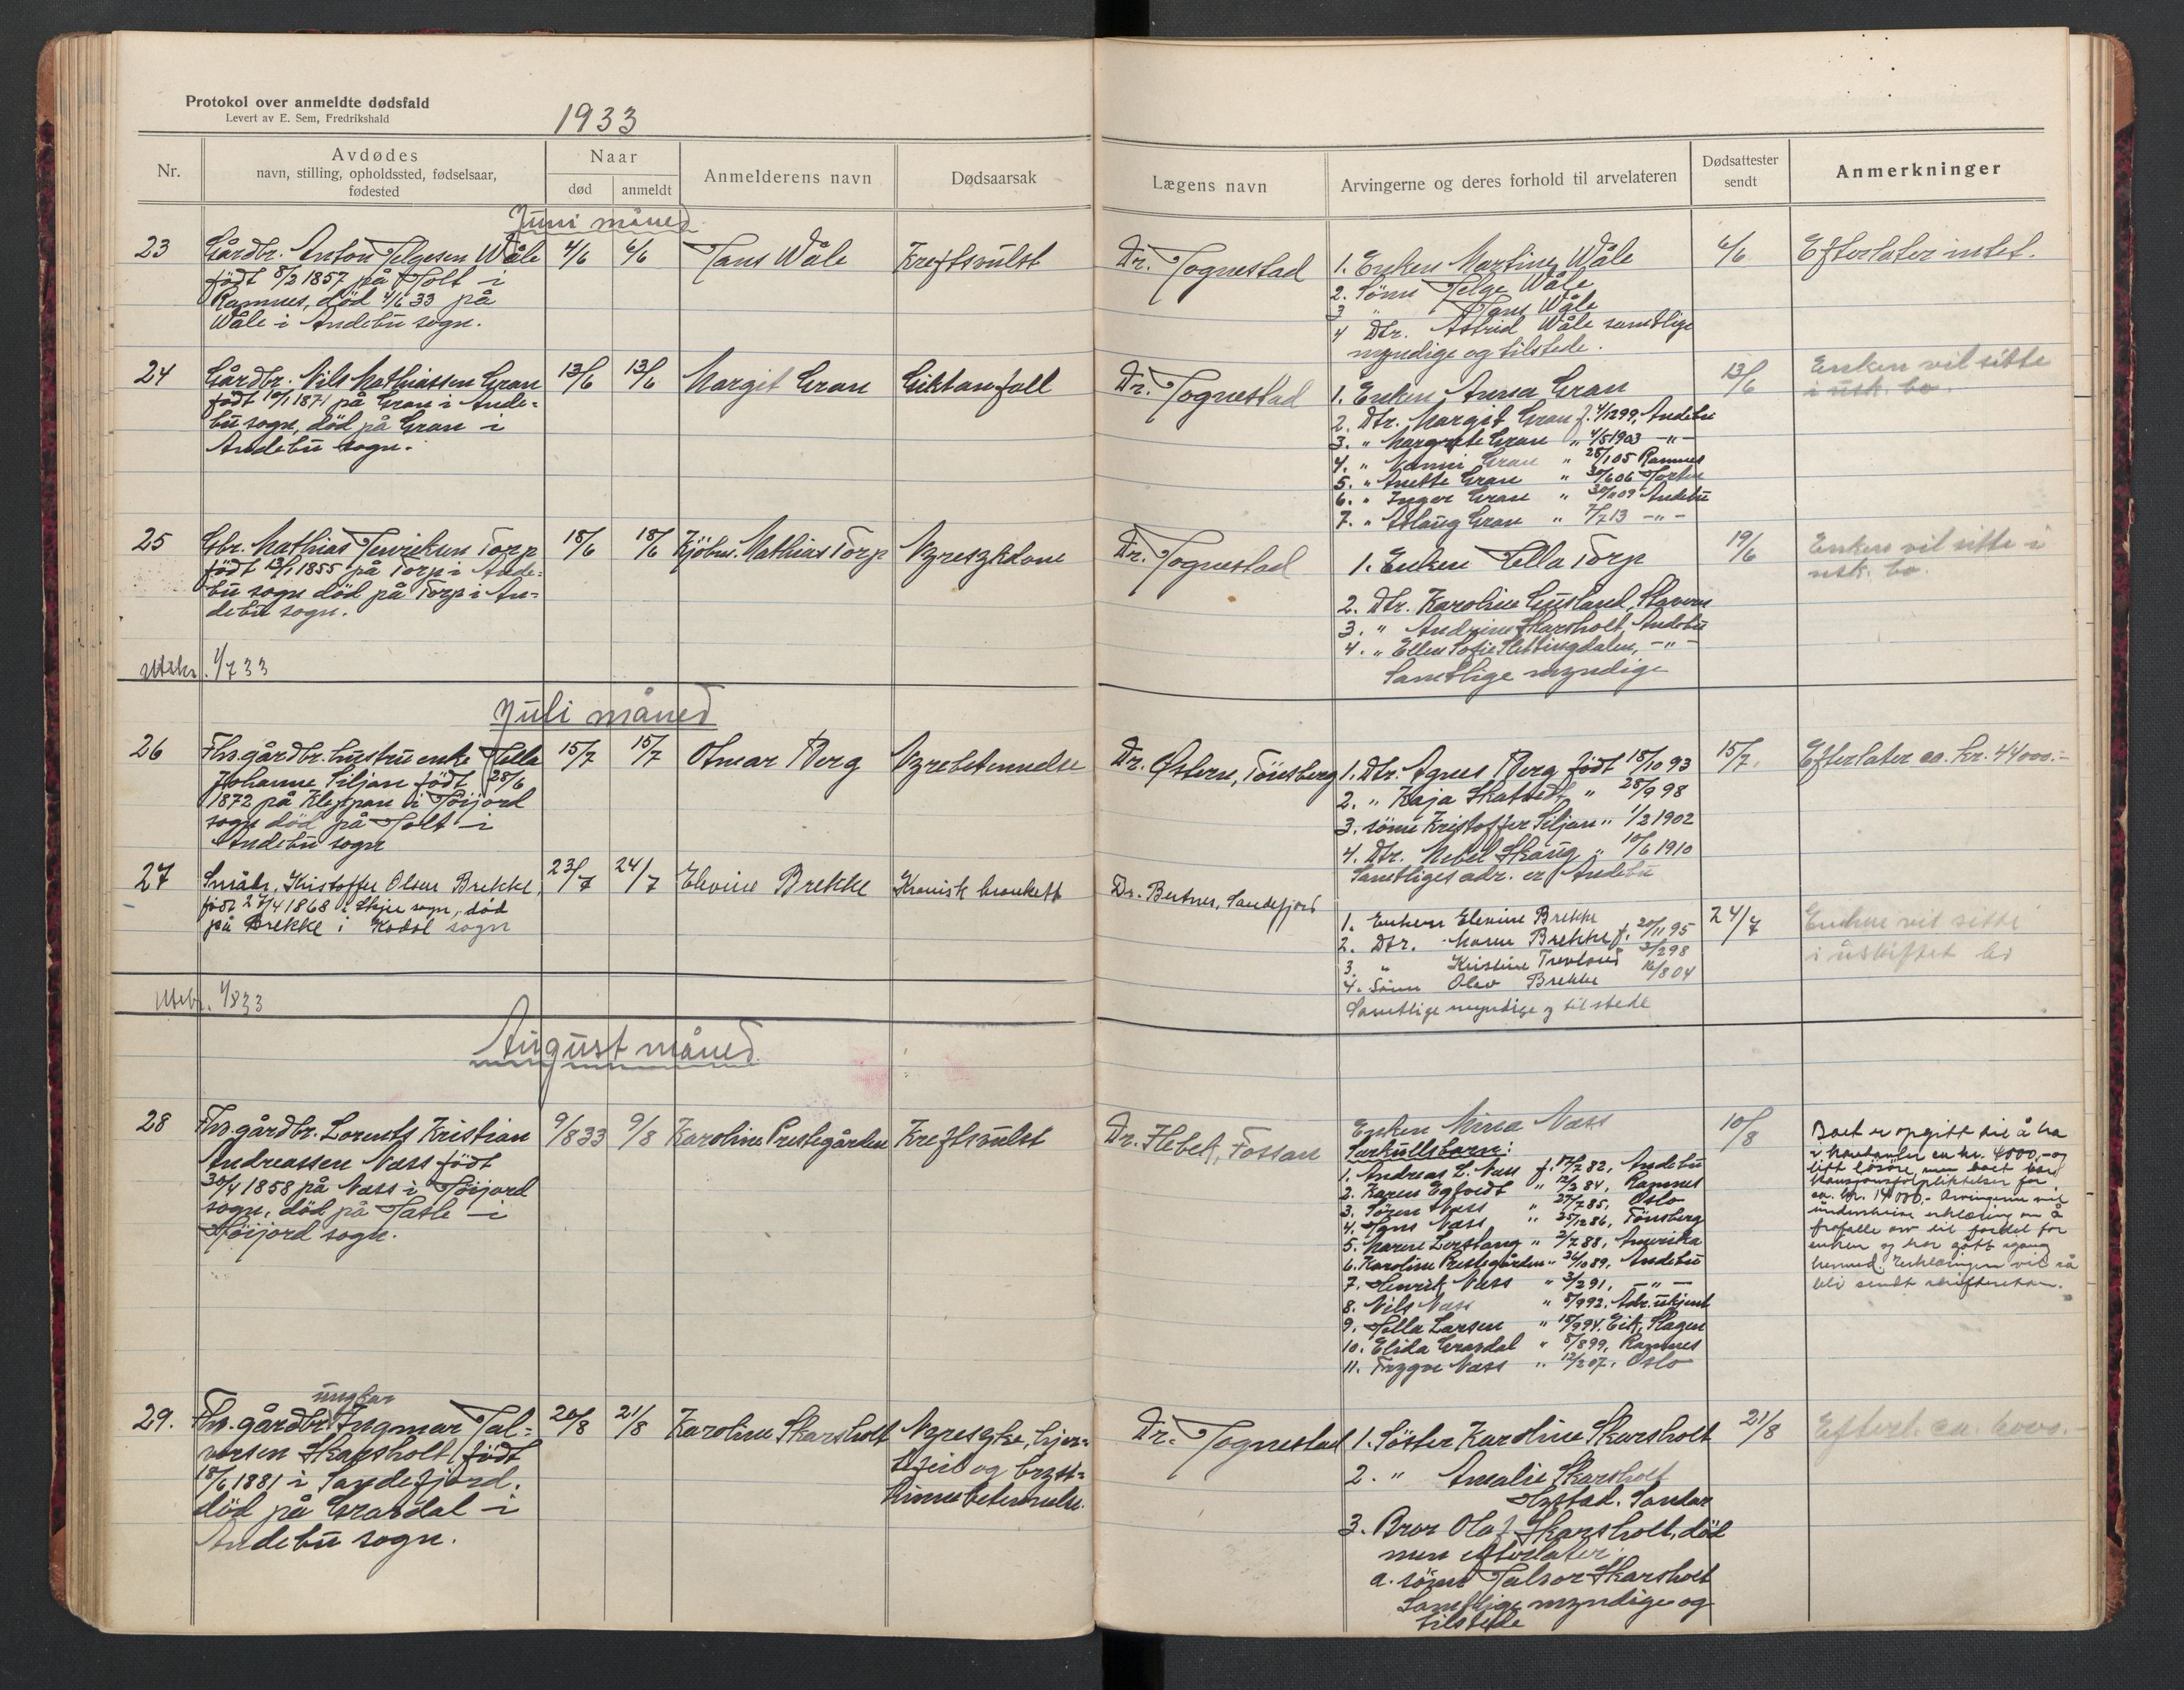 Protokol over anmeldte dødsfald
Levert av E. Sem, Fredrikshald
1933
Nr.
Avdødes
navn, stilling, opholdssted, fødselsaar,
fødested
Naar
død
anmeldt
Anmelderens navn
Dødsaarsak
Lægens navn
Arvingerne og deres forhold til arvelateren
Dødsattester
sendt
Anmerkninger
Juni måned
23
Gårdbr. Anton Helgesen Wåle
født 8/2 1857 på Holt i
Ramnes, død 4/6 33 på
Wåle i Andebu sogn.
4/6
6/6
Hans Wåle
Kreftsvulst
Dr. Hognestad
1. Enken Martine Wåle
2. Sönn Helge Wåle
3 " Hans Wåle
4 Dtr. Astrid Wåle samtlige
myndige og tilstede.
6/6
Efterlater intet.
24
Gårdbr. Nils Mathiassen Gran
født 10/1 1871 på Gran i Ande-
bu sogn, död på Gran i
Andebu sogn.
13/6
13/6
Margit Gran
Giktanfall
Dr. Hognestad
1. Enken Anna Gran
2. Dtr. Margit Gran f. 4/12 99, Andebu
3. " Margrete Gran " 4/5 1903 -"-
4. " Nanni Gran " 25/1 05 Ramnes
5. " Anette Gran " 30/6 06 Horten
6. " Inger Gran " 30/10 09 Andebu
7. " Aslaug Gran " 7/7 13 -"-
13/6
Enken vil sitte
i usk. bo.
25
Gbr. Mathias Henriksen Torp
født 13/1 1855 på Torp i Ande-
bu sogn död på Torp i An-
debu sogn.
18/6
18/6
Kjöbm. Mathias Torp
Nyresykdom
Dr. Hognestad
1. Enken Hella Torp
2. Dtr. Karoline Gusland, Stavern
3. " Andrine Skarsholt, Andebu
4. " Ellen Sofie Slettingdalen, -"-
Samtlige myndige
19/6
Enken vil sitte i
usk. bo.
Utskr. 1/7 33
Juli måned
26
Fhv. gårdbr. hustru enke Hella
Johanne Siljan født 28/6
1872 på Kleppan i Höijord
sogn död på Holt i
Andebu sogn
15/7
15/7
Otmar Berg
Nyrebetennelse
Dr. Østern, Tönsberg
1. Dtr. Agnes Berg født 15/10 93
2. " Kaja Skatvedt " 28/9 98
3. sönn Kristoffer Siljan " 1/2 1902
4. Dtr. Mebel Skaug " 10/6 1910
Samtliges adr. er Andebu
15/7.
Efterlater ca. kr. 44000.-
27
Småbr. Kristoffer Olsen Brekke,
født 27/4 1868 i Skjee sogn, död
på Brekke i Kodal sogn
23/7
24/7
Elevine Brekke
Kronisk bronkitt
Dr. Butner, Sandefjord
1. Enken Elevine Brekke
2. Dtr. Maren Brekke f. 20/11 95
3. " Kristine Trevland 3/2 98
4. Sönn Olav Brekke 16/8 04
Samtlige myndige og tilstede
24/7
Enken vil sitte
i uskiftet bo
Utskr. 1/8 33
August måned
28
Fhv. gårdbr. Lorents Kristian
Andreassen Næss født
30/4 1858 på Næss i Höijord
sogn, död på Hasle i
Höijord sogn.
9/8 33
9/8
Karoline Prestegården
Kreftsvulst
Dr. Flebek, Fossan
Enken Mina Næss
Særkullsbarn:
1. Andreas L. Næss f. 17/7 82, Andebu
2. Karen Egtvedt " 12/3 84, Ramnes
3. Sören Næss " 27/7 85, Oslo
4. Hans Næss " 25/12 86, Tönsberg
5. Maren Lerstang " 2/7 88, Amerika
6. Karoline Prestegården " 26/10 89, Andebu
7. Henrik Næss " 3/2 91, -"-
8. Nils Næss " 5/9 92. Adr. ukjent
9. Hella Larsen " 18/9 94. Eik, Slagen
10. Elida Grasdal " 8/8 99, Ramnes
11. Trygve Næss " 12/2 07. Oslo
10/8
Boet er opgitt til å ha
i kontanter ca kr. 4000,- og
litt lösöre, men boet har
kausjonsforpliktelser for
ca. kr. 14000.- Arvingerne vil
underskrive erklæring om å
frafalle arv til fordel for
enken og har gått igang
hermed. Erklæringen vil så
bli sendt skifteretten.
29.
ungkar
Fhv. gårdbr. Ingmar Hal-
vorsen Skarsholt, født
18/6 1881 i Sandefjord.
död på Grasdal i
Andebu sogn.
20/8
21/8
Karoline Skarsholt
Nyresyke, hjer-
tefeil og bryst-
hinnebetennelse.
Dr. Hognestad
1. Söster Karoline Skarsholt
2. " Amalie Skarsholt
Hystad. Sandar
3. Bror Olaf Skarsholt, död
men efterlater
a. sönn Halvor Skarsholt
Samtlige myndige og
tilstede
21/8
Efterl. ca. 6000.-